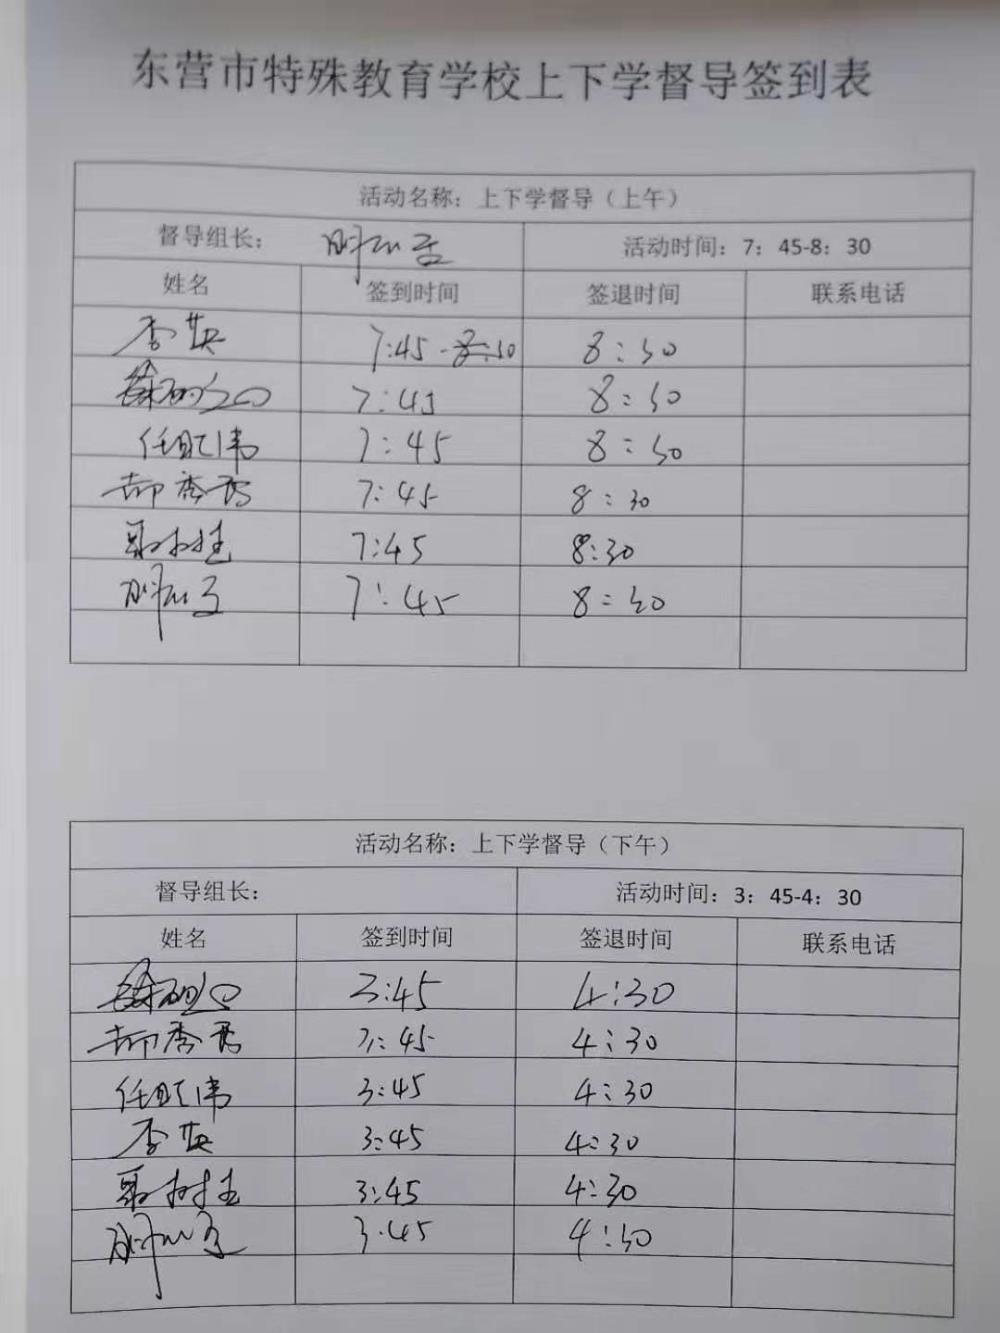 东营市特殊教育学校上下学督导签到表
活动名称：上下学督导（上午）
督导组长： 活动时间：7：45-8：30
姓名 签到时间 签退时间 联系电话
李英 7:45 8:30
7:45 8:30
任 伟 7:45 8:30
郝秀 7:45 8:30
7:45 8:30
7:45 8:30
活动名称：上下学督导（下午）
督导组长： 活动时间：3：45-4：30
姓名 签到时间 签退时间 联系电话
3:45 4:30
郝秀 3:45 4:30
任 伟 3:45 4:30
李英 3:45 4:30
3:45 4:30
3:45 4:30